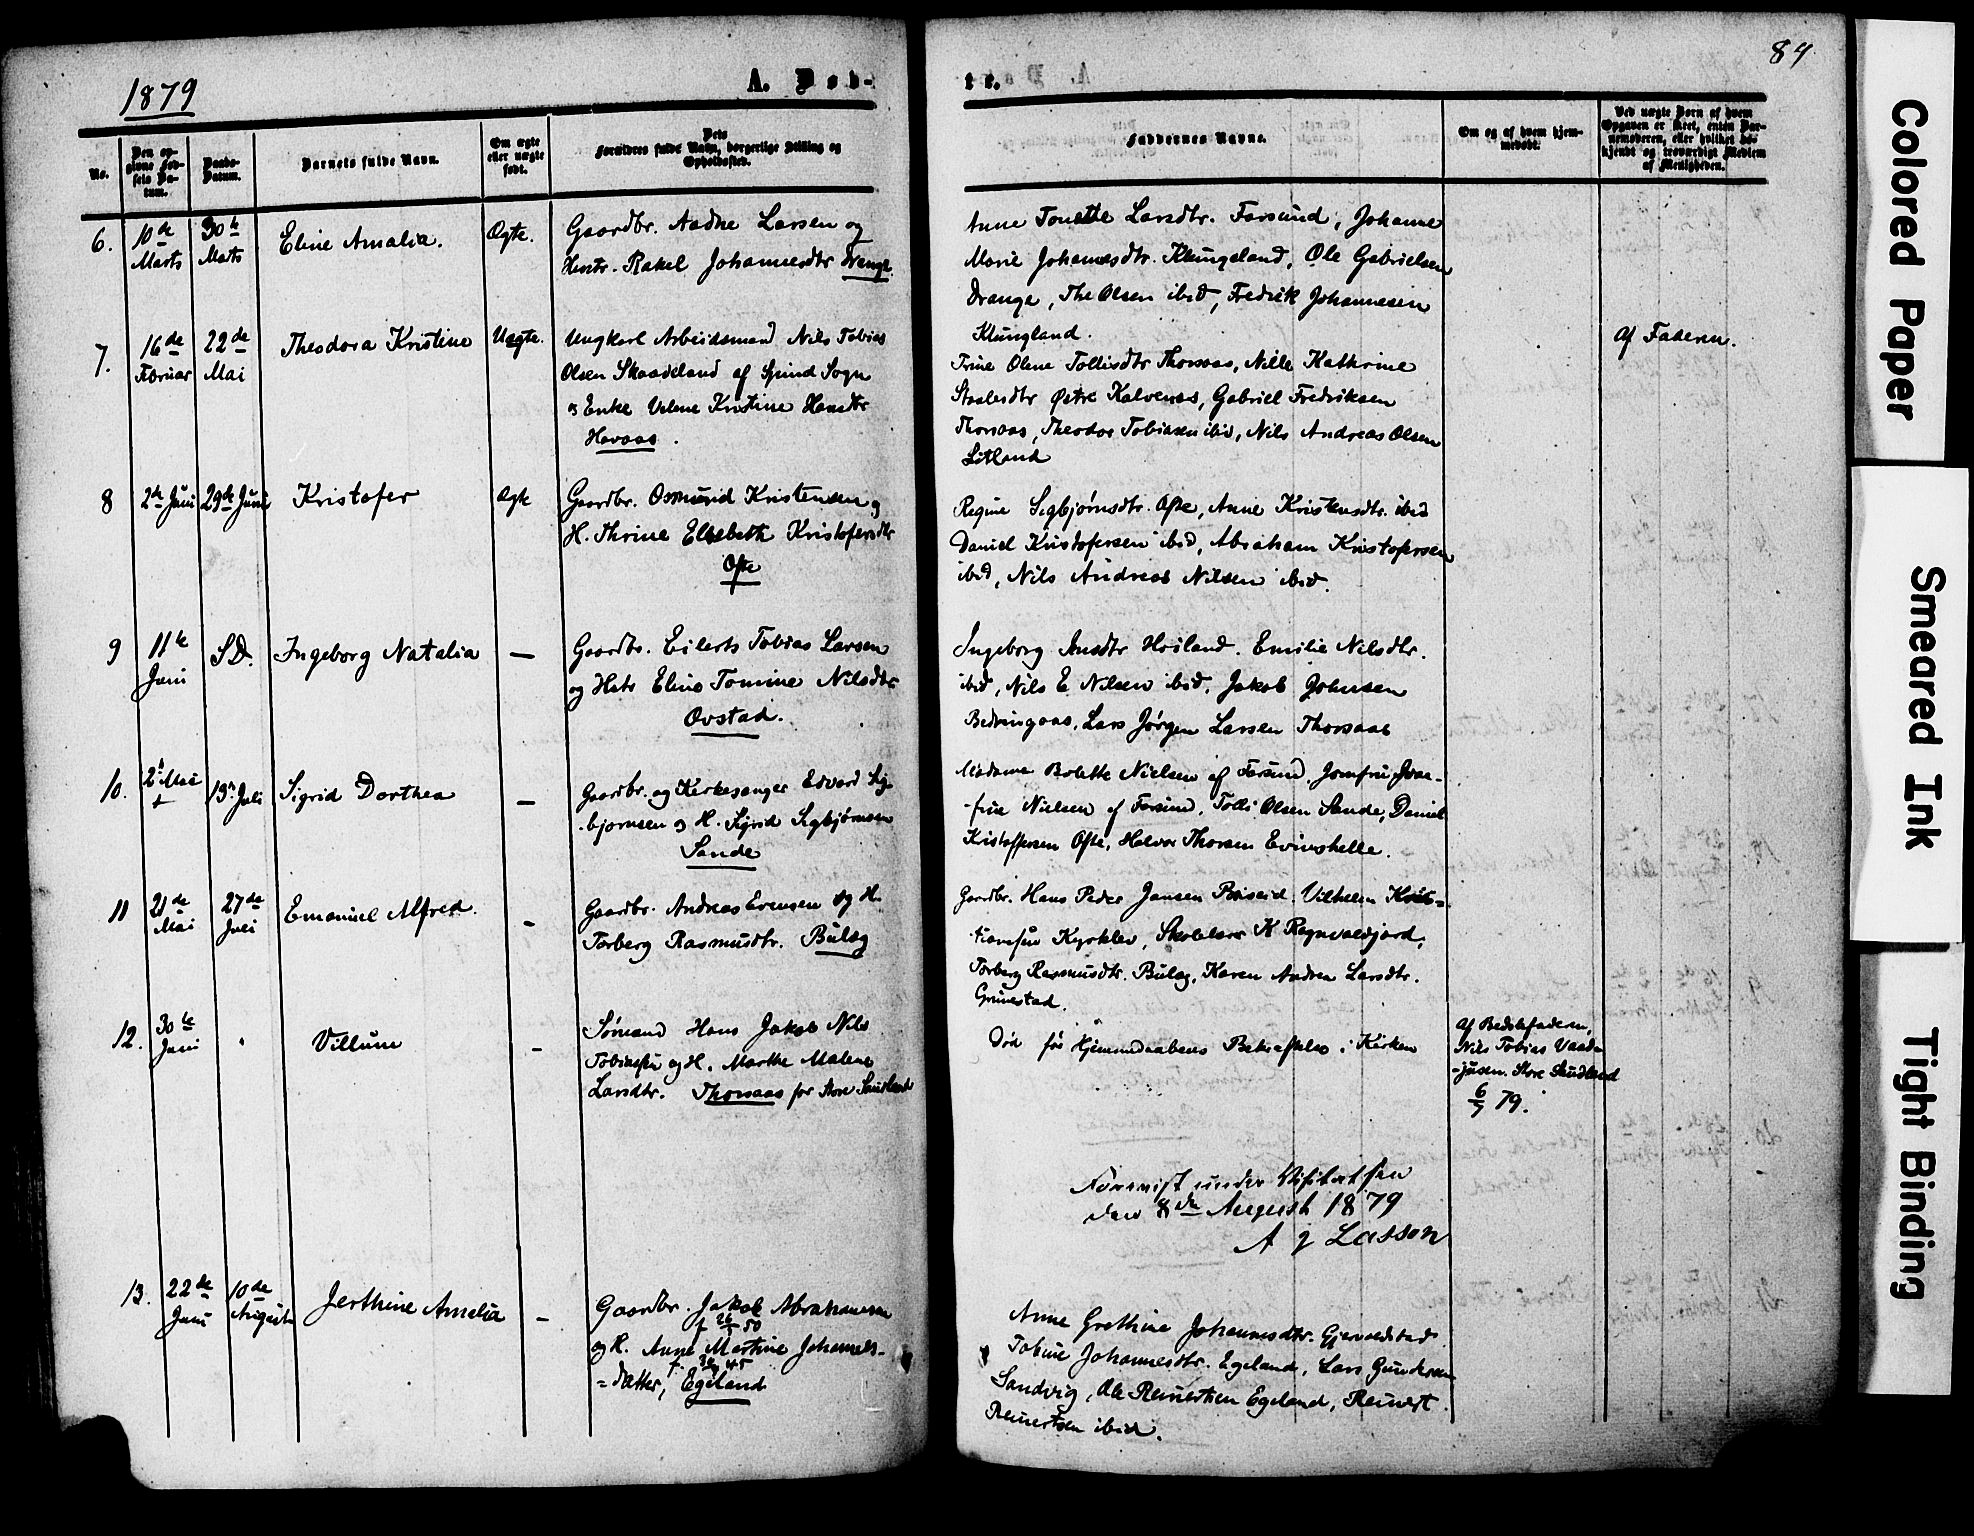 1879
A. Døb-
No.
Den op-
givne Fød-
sels Da-
tum.
Daabs-
Datum.
Barnets fulde Navn.
Om ægte
eller uægte
født.
Dets
Forældres fulde Navn, borgerlige Stilling og
Opholdssted.
6.
10de
Marts
30te
Marts
Eline Amalia.
Ægte.
Gaardbr. Aadne Larsen og
Hustr. Rakel Johannesdtr Drange.
7.
16de
Februar
22de
Mai
Theodora Kristine
Uægte.
Ungkarl Arbeidsmand Nils Tobias
Olsen Skaadeland af Spind Sogn
og Enke Velene Kristine Hansdtr
Havaas.
8
2de Juni
29de Juni
Kristofer
Ægte
Gaardbr. Osmund Kristensen og
H. Thrine Elsebeth Kristofersdtr
Ofte
9
11te
Juni
S.D.
Ingeborg Natalia
—
Gaardbr. Eilerts Tobias Larsen
og Hstr Eline Tomine Nilsdtr
Ovstad.
10.
2d Mai
13de Juli
Sigrid Dorthea
—
Gaardbr. og Kirkesanger Edvard Sig-
bjørnsen og H. Sigrid Sigbjørnsen
Sande
11
21de
Mai
27de
Juli
Emanuel Alfred.
—
Gaardbr. Andreas Evensen og H.
Torberg Rasmusdtr. Bulæg
12.
30te
Juni
Villum
-
Sømand Hans Jakob Nils
Tobiassen og H. Marthe Malene
Larsdtr. Thorsaas før Store Sundland
13.
22de
Juni
10de
August
Jerthine Amelia
-
Gaardbr. Jakob Abrahamsen
og H. Anne Martine Johannes-
=datter, Egeland
te.
84
Faddernes Navne.
Om og af hvem hjem-
medøbt.
Ved uægte Børn af hvem
Opgaven er skeet, enten Bar-
nemoderen, eller hvilket be-
kjendt og troværdigt Medlem
af Menigheden.
Anne Tonette Larsdtr. Farsund, Johanne
Marie Johannesdtr. Klungeland, Ole Gabrielsen
Drange, The Olsen ibid, Fredrik Johannesen
Klungland.
Trine Olene Tollisdtr Thorsaas, Nille Kathrine
Staalesdtr Østre Kalvenes, Gabriel Fredriksen
Thorsaas, Theodor Tobiasen ibid, Nils Andreas Olsen
Litland
Af Faderen.
Regine Sigbjørnsdtr. Ofte, Anne Kristensdtr. ibid
Daniel Kristofersen ibid, Abraham Kristofersen
ibid, Nils Andreas Nilsen ibid.
Ingeborg Hoiland. Emilie Nilsdtr.
ibid, Nils E. Nilsen ibid, Jakob Johnsen
Bedringaas, Lars Jørgen Larsen Thorsaas
Madame Bolette Nielsen af Farsund, Jomfru
Nielsen af Farsund, Tolli Olsen Sande, Daniel
Kristoffersen Ofte, Halvor Thorsen Evinshelle.
Gaardbr. Hans Peder Jansen Briseid, Vilhelm Kris-
tiansen Kjørklev, Skolelærer K Regnvaldjord,
Torberg Rasmusdtr. Bulæg, Karen Andrea Larsdtr.
Grimestad.
Død før Hjemmedaabens Bekræftelse i Kirken
Af Bedstefaderen,
Nils Tobias
Store Sundland
6/7 79.
Foreviist under Visitatsen
den 8de August 1879
A G Lasson
Anne Grethine Johannesdtr. Gjervoldstad
Tobine Johannesdtr. Egeland, Lars Gundersen
Sandvig, Ole Reinertsen Egeland, Reinert
Reinertsen ibid.
Colored Paper
Smeared Ink
Tight Binding